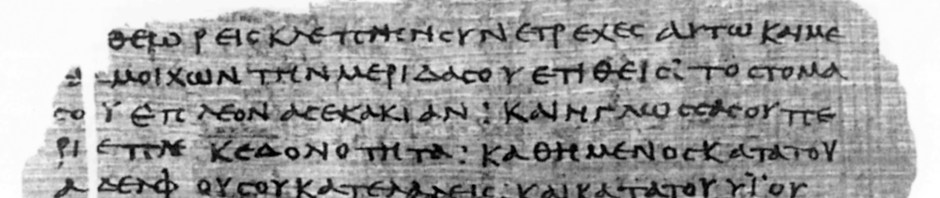 ΘΕΩΡΕΙϹ ΚΛΕΠΤΗΝ ϹΥΝΕΤΡΕΧΕϹ ΑΥΤΩ ΚΑΙ ΜΕ
ΜΟΙΧΩΝ ΤΗΝ ΜΕΡΙΔΑ ϹΟΥ ΕΤΙΘΕΙϹ: ΤΟ ϹΤΟΜΑ
ϹΟΥ ΕΠΛΕΟΝΑϹΕ ΚΑΚΙΑΝ : ΚΑΙ Η ΓΛΩϹϹΑ ϹΟΥ ΠΕ
ΡΙΕΠΛΕΚΕ ΔΟΝΟΤΗΤΑ: ΚΑΘΗΜΕΝΟϹ ΚΑΤΑ ΤΟΥ
ΑΔΕΛΦΟΥ ϹΟΥ ΚΑΤΕΛΑΛΕΙϹ: ΚΑΙ ΚΑΤΑ ΤΟΥ ΥΪΟΥ